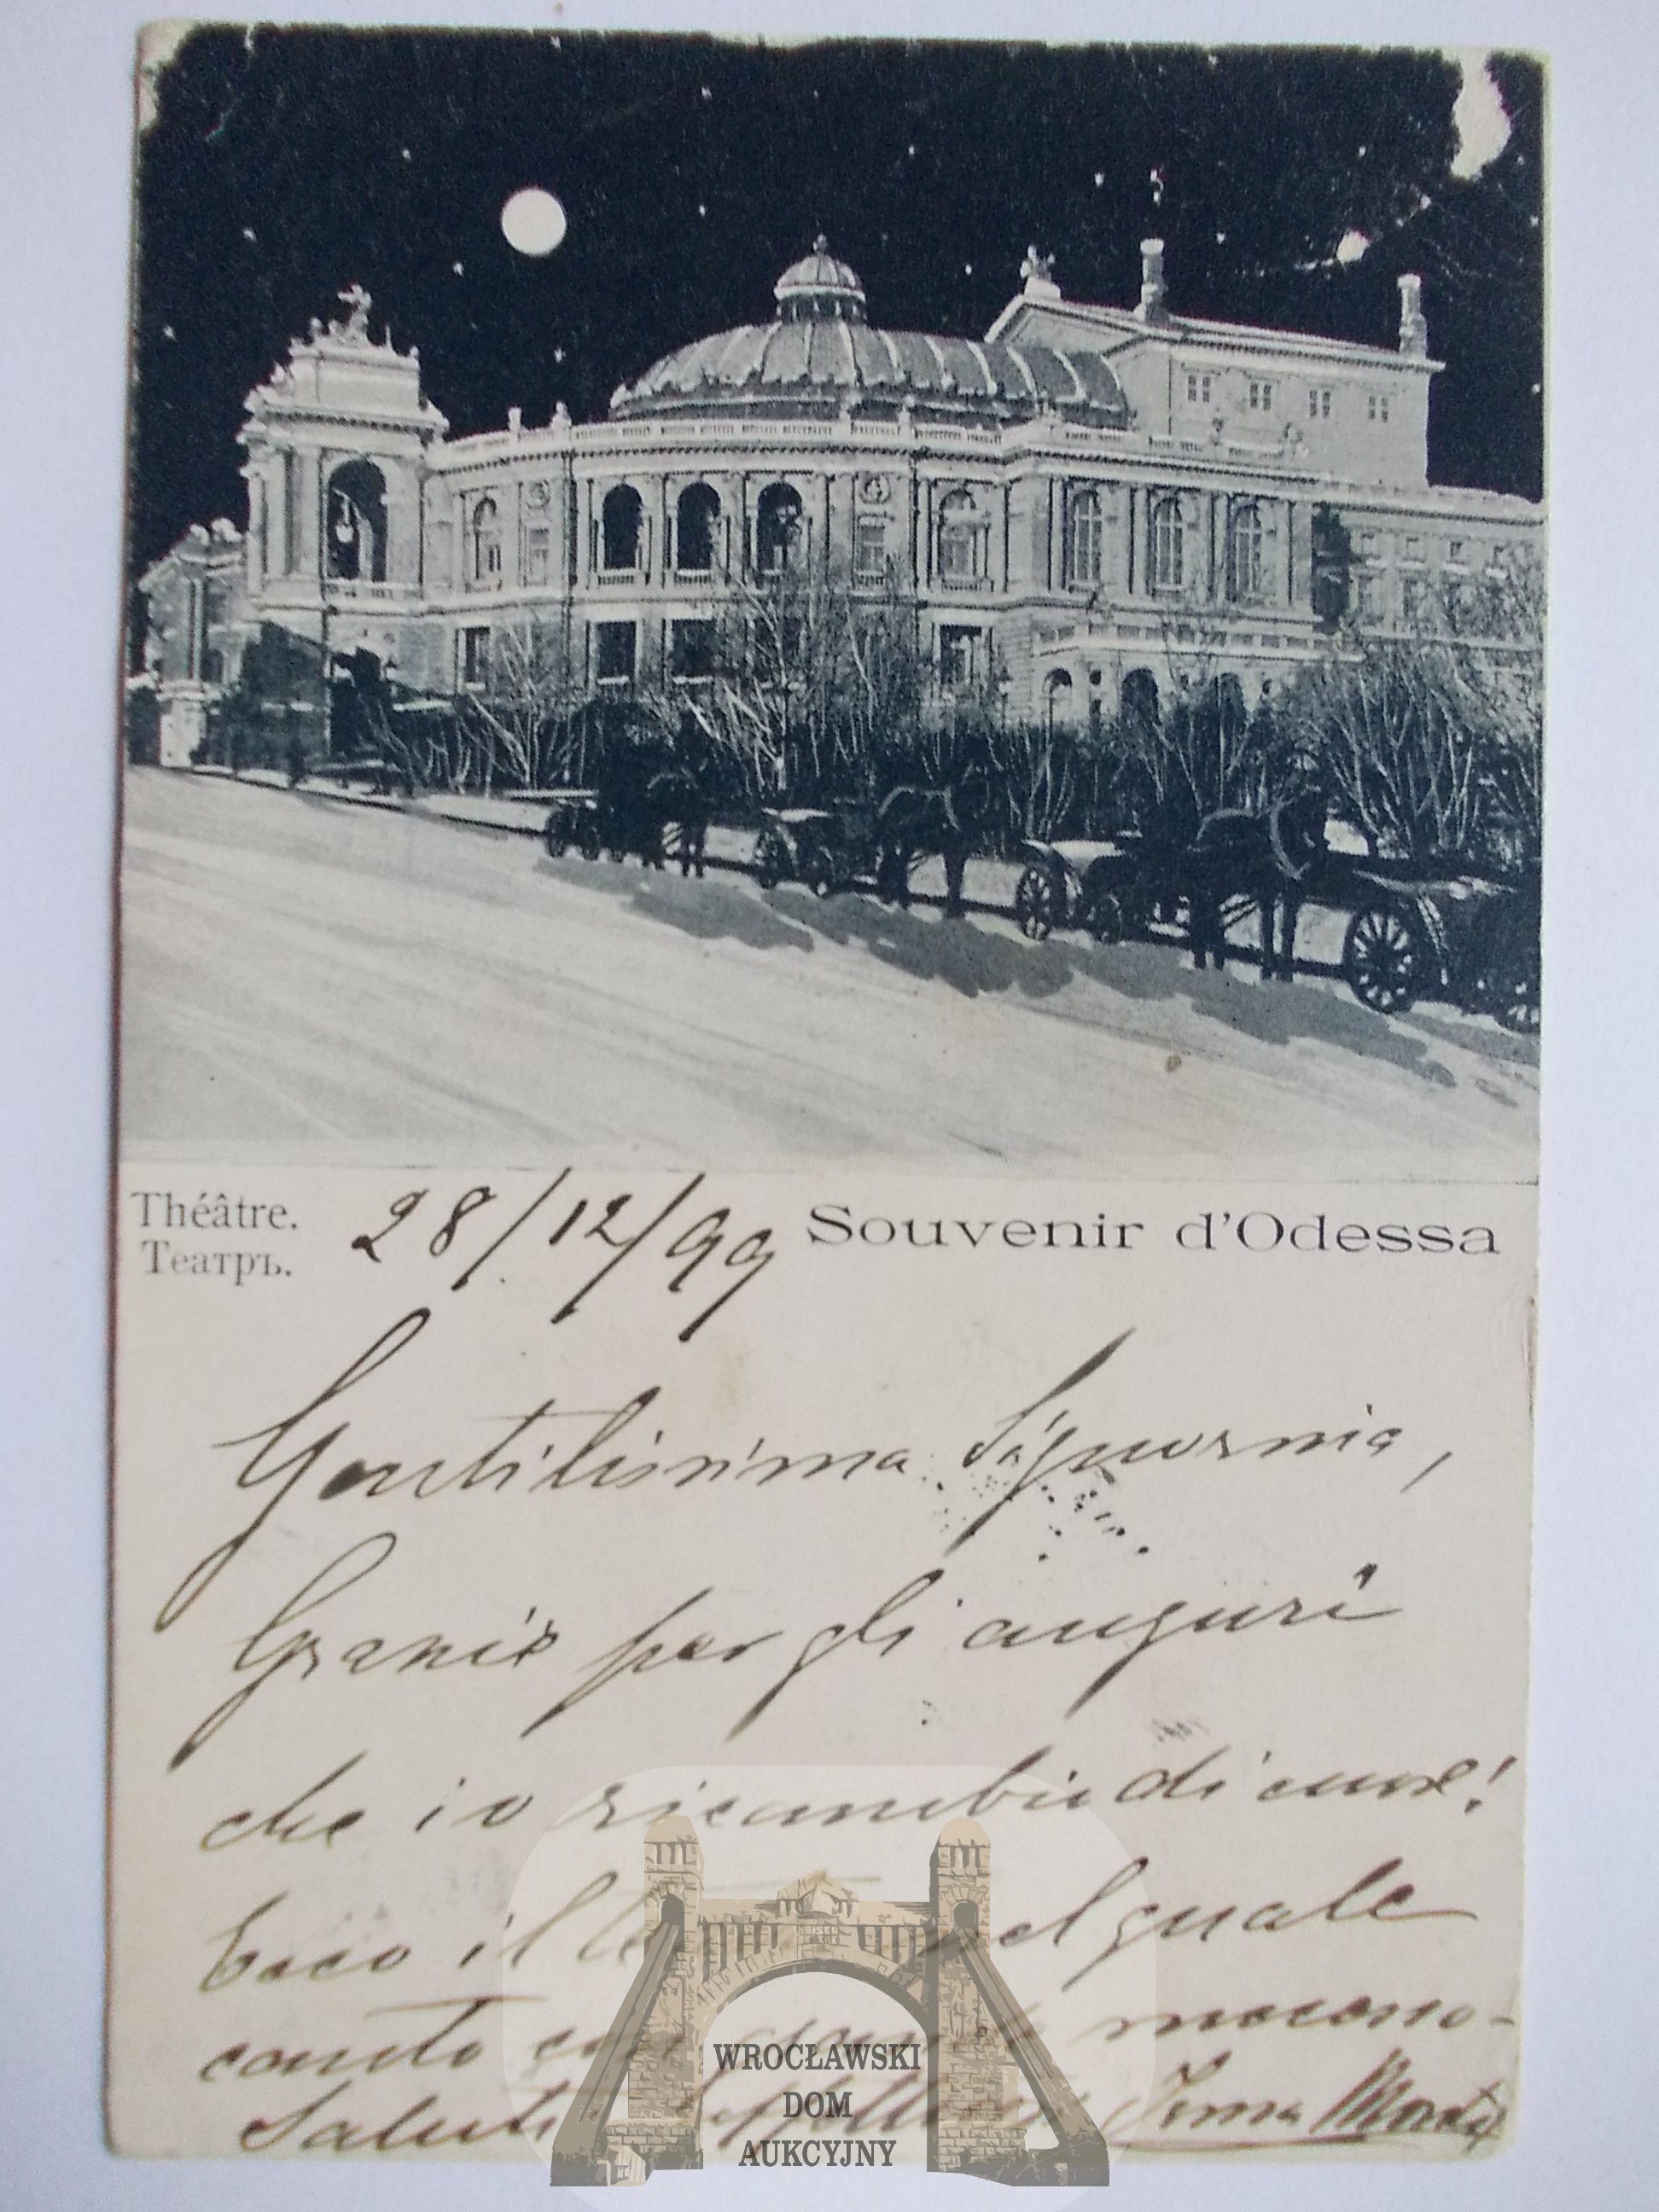 Théâtre.
Театръ.
28/12/99
Souvenir d'Odessa
Gentilissima Signorina,
Grazie per gli auguri
che io ricambio di cuore!
Ecco il nel quale
canto con
Saluti Irma
WROCŁAWSKI
DOM
AUKCYJNY